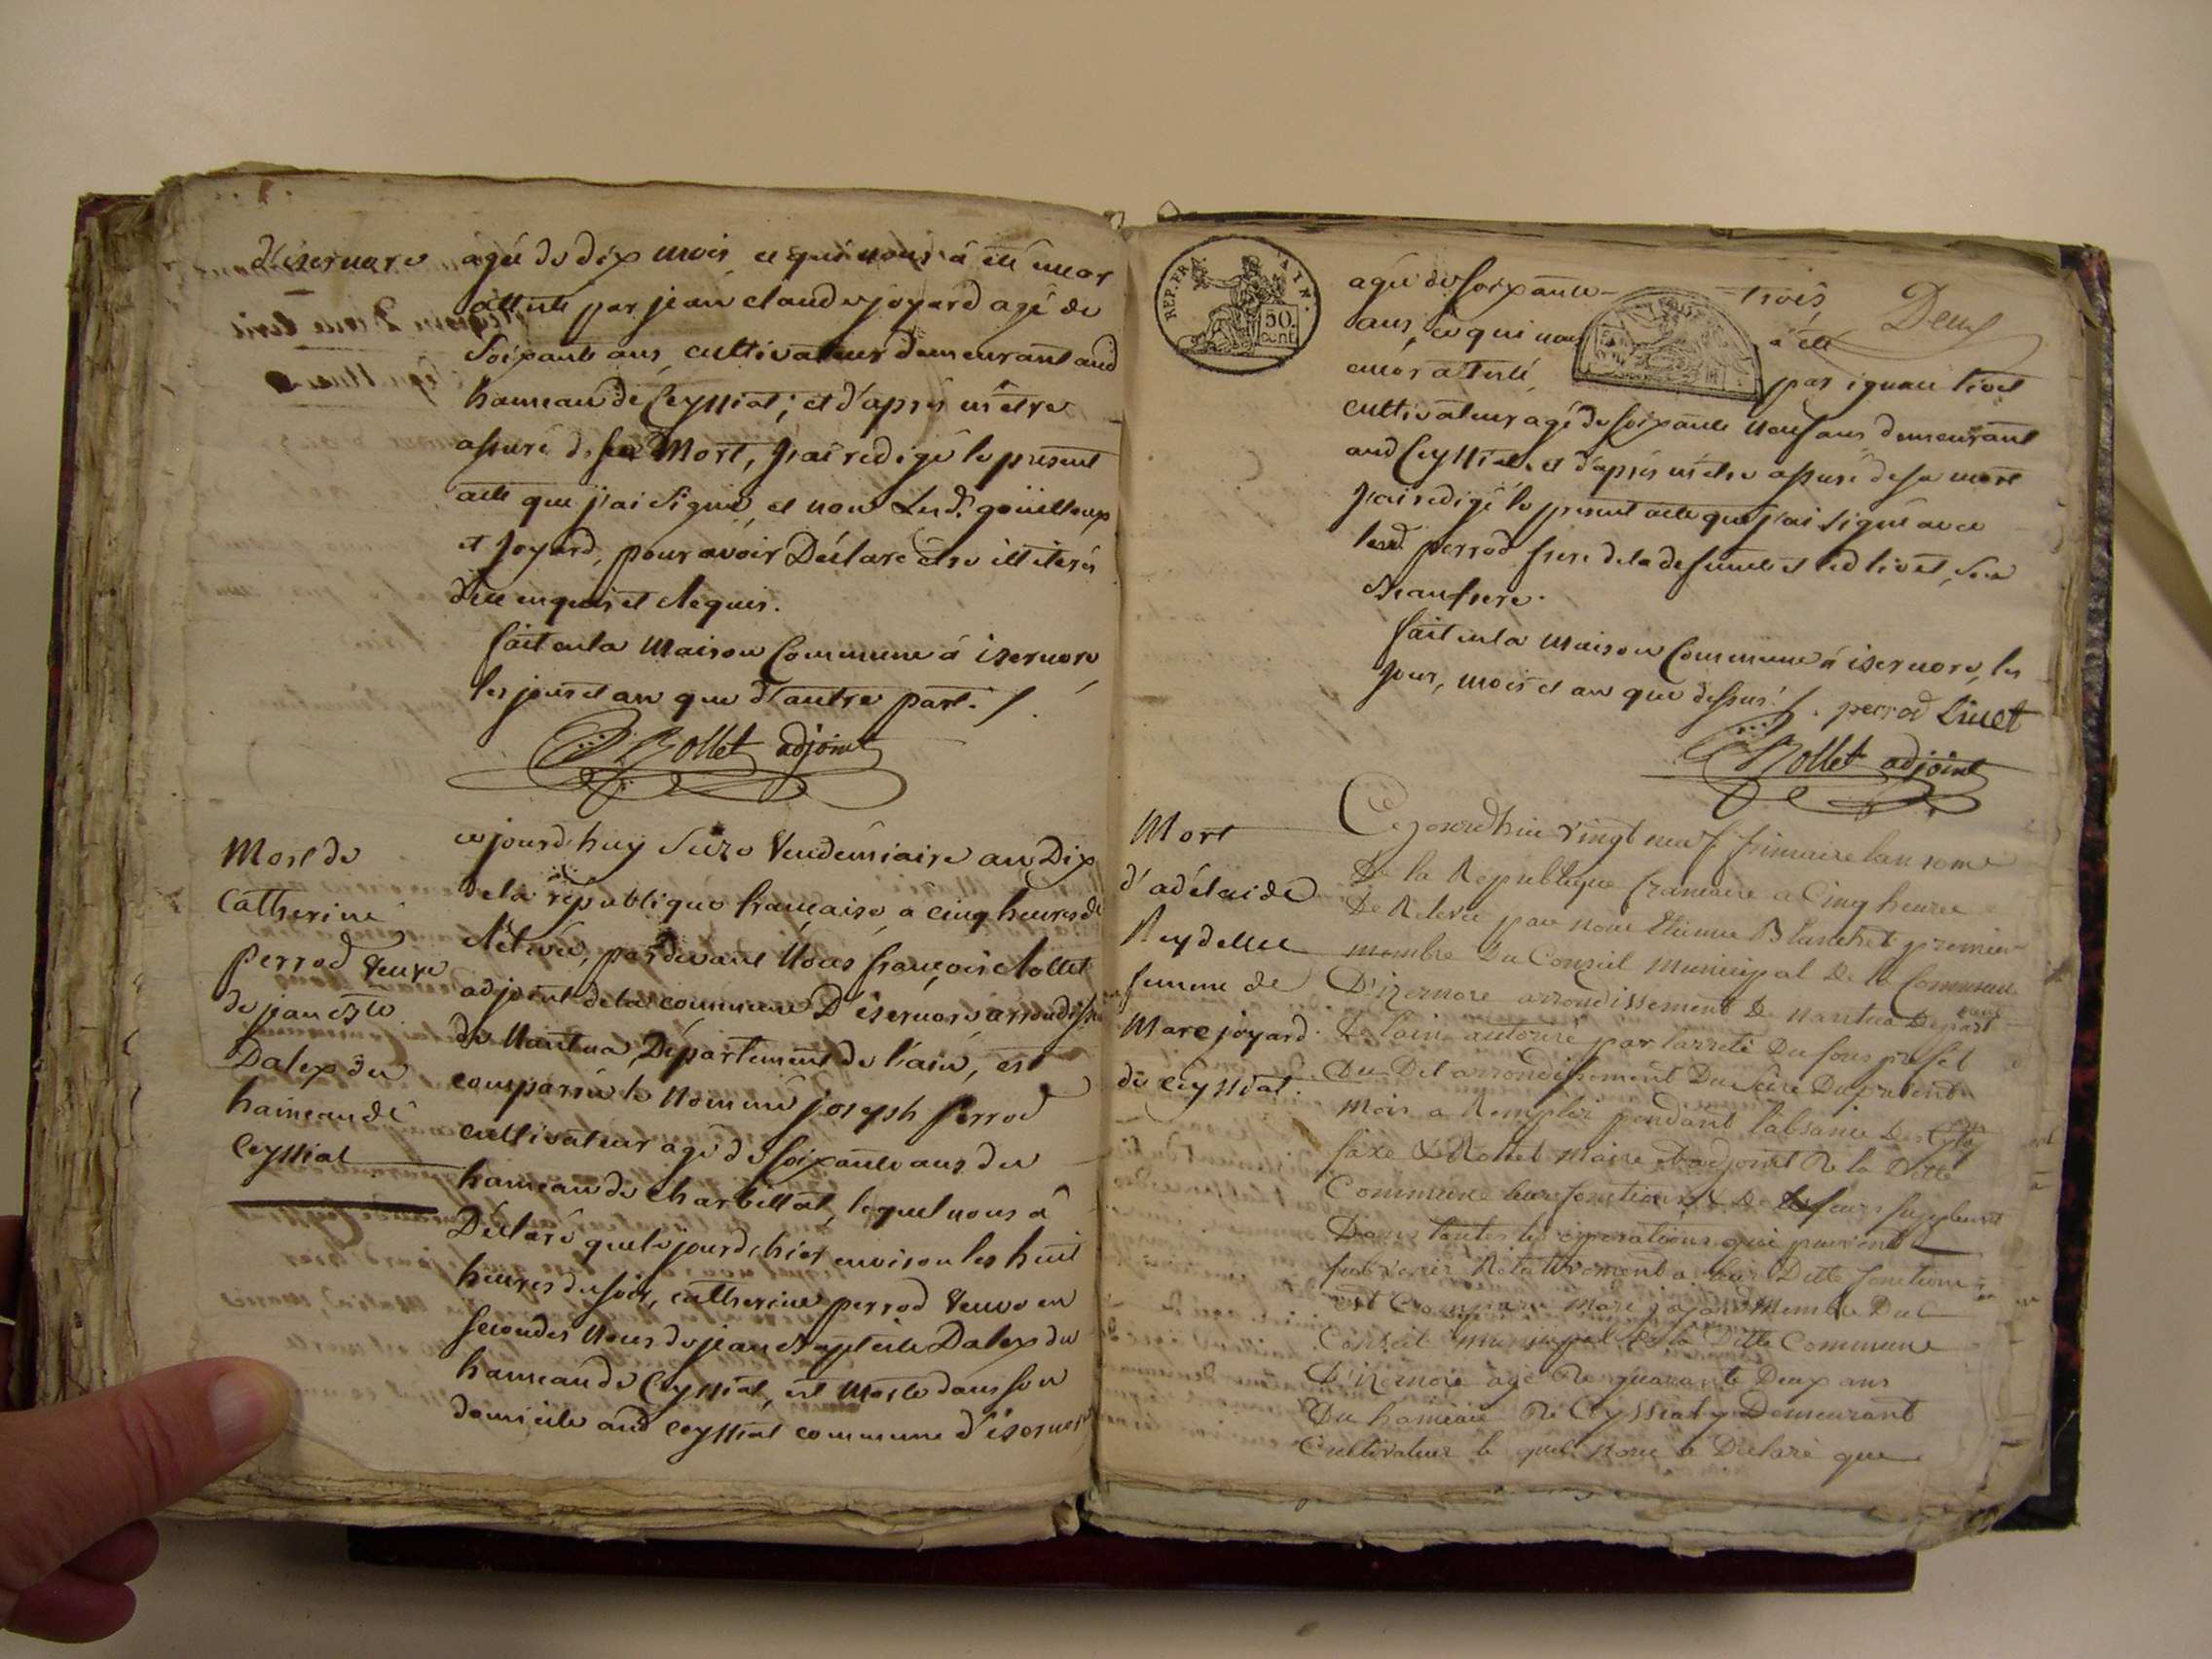 d'isernore agée de dix mois, ce qui nous à été encor
attesté par jean claude joyard agé de
Soixante ans, cultivateur demeurant aud
hameau de Ceyssiat; et d'après m'être
assuré de sa Mort, j'ai redigé le présent
acte que j'ai signé, et non Lesd. goüilloux
et joyard, pour avoir Déclaré être illiterés
de ce enquis et Requis.
fait en la Maison Commune à isernore,
les jour et an que d'autre part. /.
Rollet adjoint
Mort de
Catherine
perrod veuve
de jean Bte
Dalex du
hameau de
Ceyssiat
cejourd'huy Seize Vendémiaire an Dix
de la république française, a cinq heures de
Relevée, pardevant Nous françois Rollet
adjoint de la commune D'isernore, arrondisse
de Nantua, Département de l'ain, est
comparu le Nommé joseph perrod
cultivateur agé de soixante ans du
hameau de charbillat, lequel nous à
Déclaré que le jourd'hier environ les huit
heures du soir, catherine perrod Veuve en
secondes Noces de jean Baptiste Dalex du
hameau de Ceyssiat, est Morte dans son
domicile aud Ceyssiat commune d'isernore
REP. FRA.
50.
cent.
Deux
agée de soixante - trois
ans, ce qui nous à été
encor attesté, par ignace livet
cultivateur agé de soixante neuf ans demeurant
aud Ceyssiat, et d'après m'être assuré de sa mort
j'ai redigé le present acte que j'ai signé avec
led. perrod frere de la defunte et led livet, son
Beaufrere.
fait en la maison Commune à isernore, les
jour, mois et an que dessus. /. perrod Livet
Rollet adjoint
Mort
d'adélaide
Reydellet
femme de
Marc joyard
de Ceyssiat.
Cejourdhui vingt neuf frimaire lan 10me
De la Republique francaise a Cinq heures
De Relevée par nous Etienne Blanchet premier
membre Du Conseil Municipal De la Commune
D'izernore arrondissement De nantua Depart
De lain autorisé par larreté Du sous prefet
Du Dit arrondissement Du seize Du present
mois a Remplir pendant labsance Des Cytns
faxe & Rollet Maire et adjoint De la Ditte
Commune leurs fonctions & De les
Dans toutes les opperations qui peuvent
subvenir Relativement a leur Ditte fonctions
est Comparu Marc joyard Membre Du
Conseil municipal De la Ditte Commune
D'izernore agé De quarante Deux ans
Du hameau De Ceyssiat y Demeurant
Cultivateur le quel nous a Declaré que